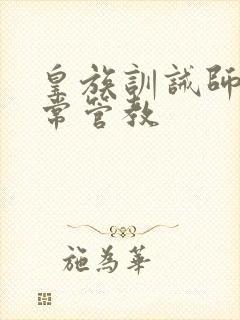 皇族訓誡師
常管教
施為華